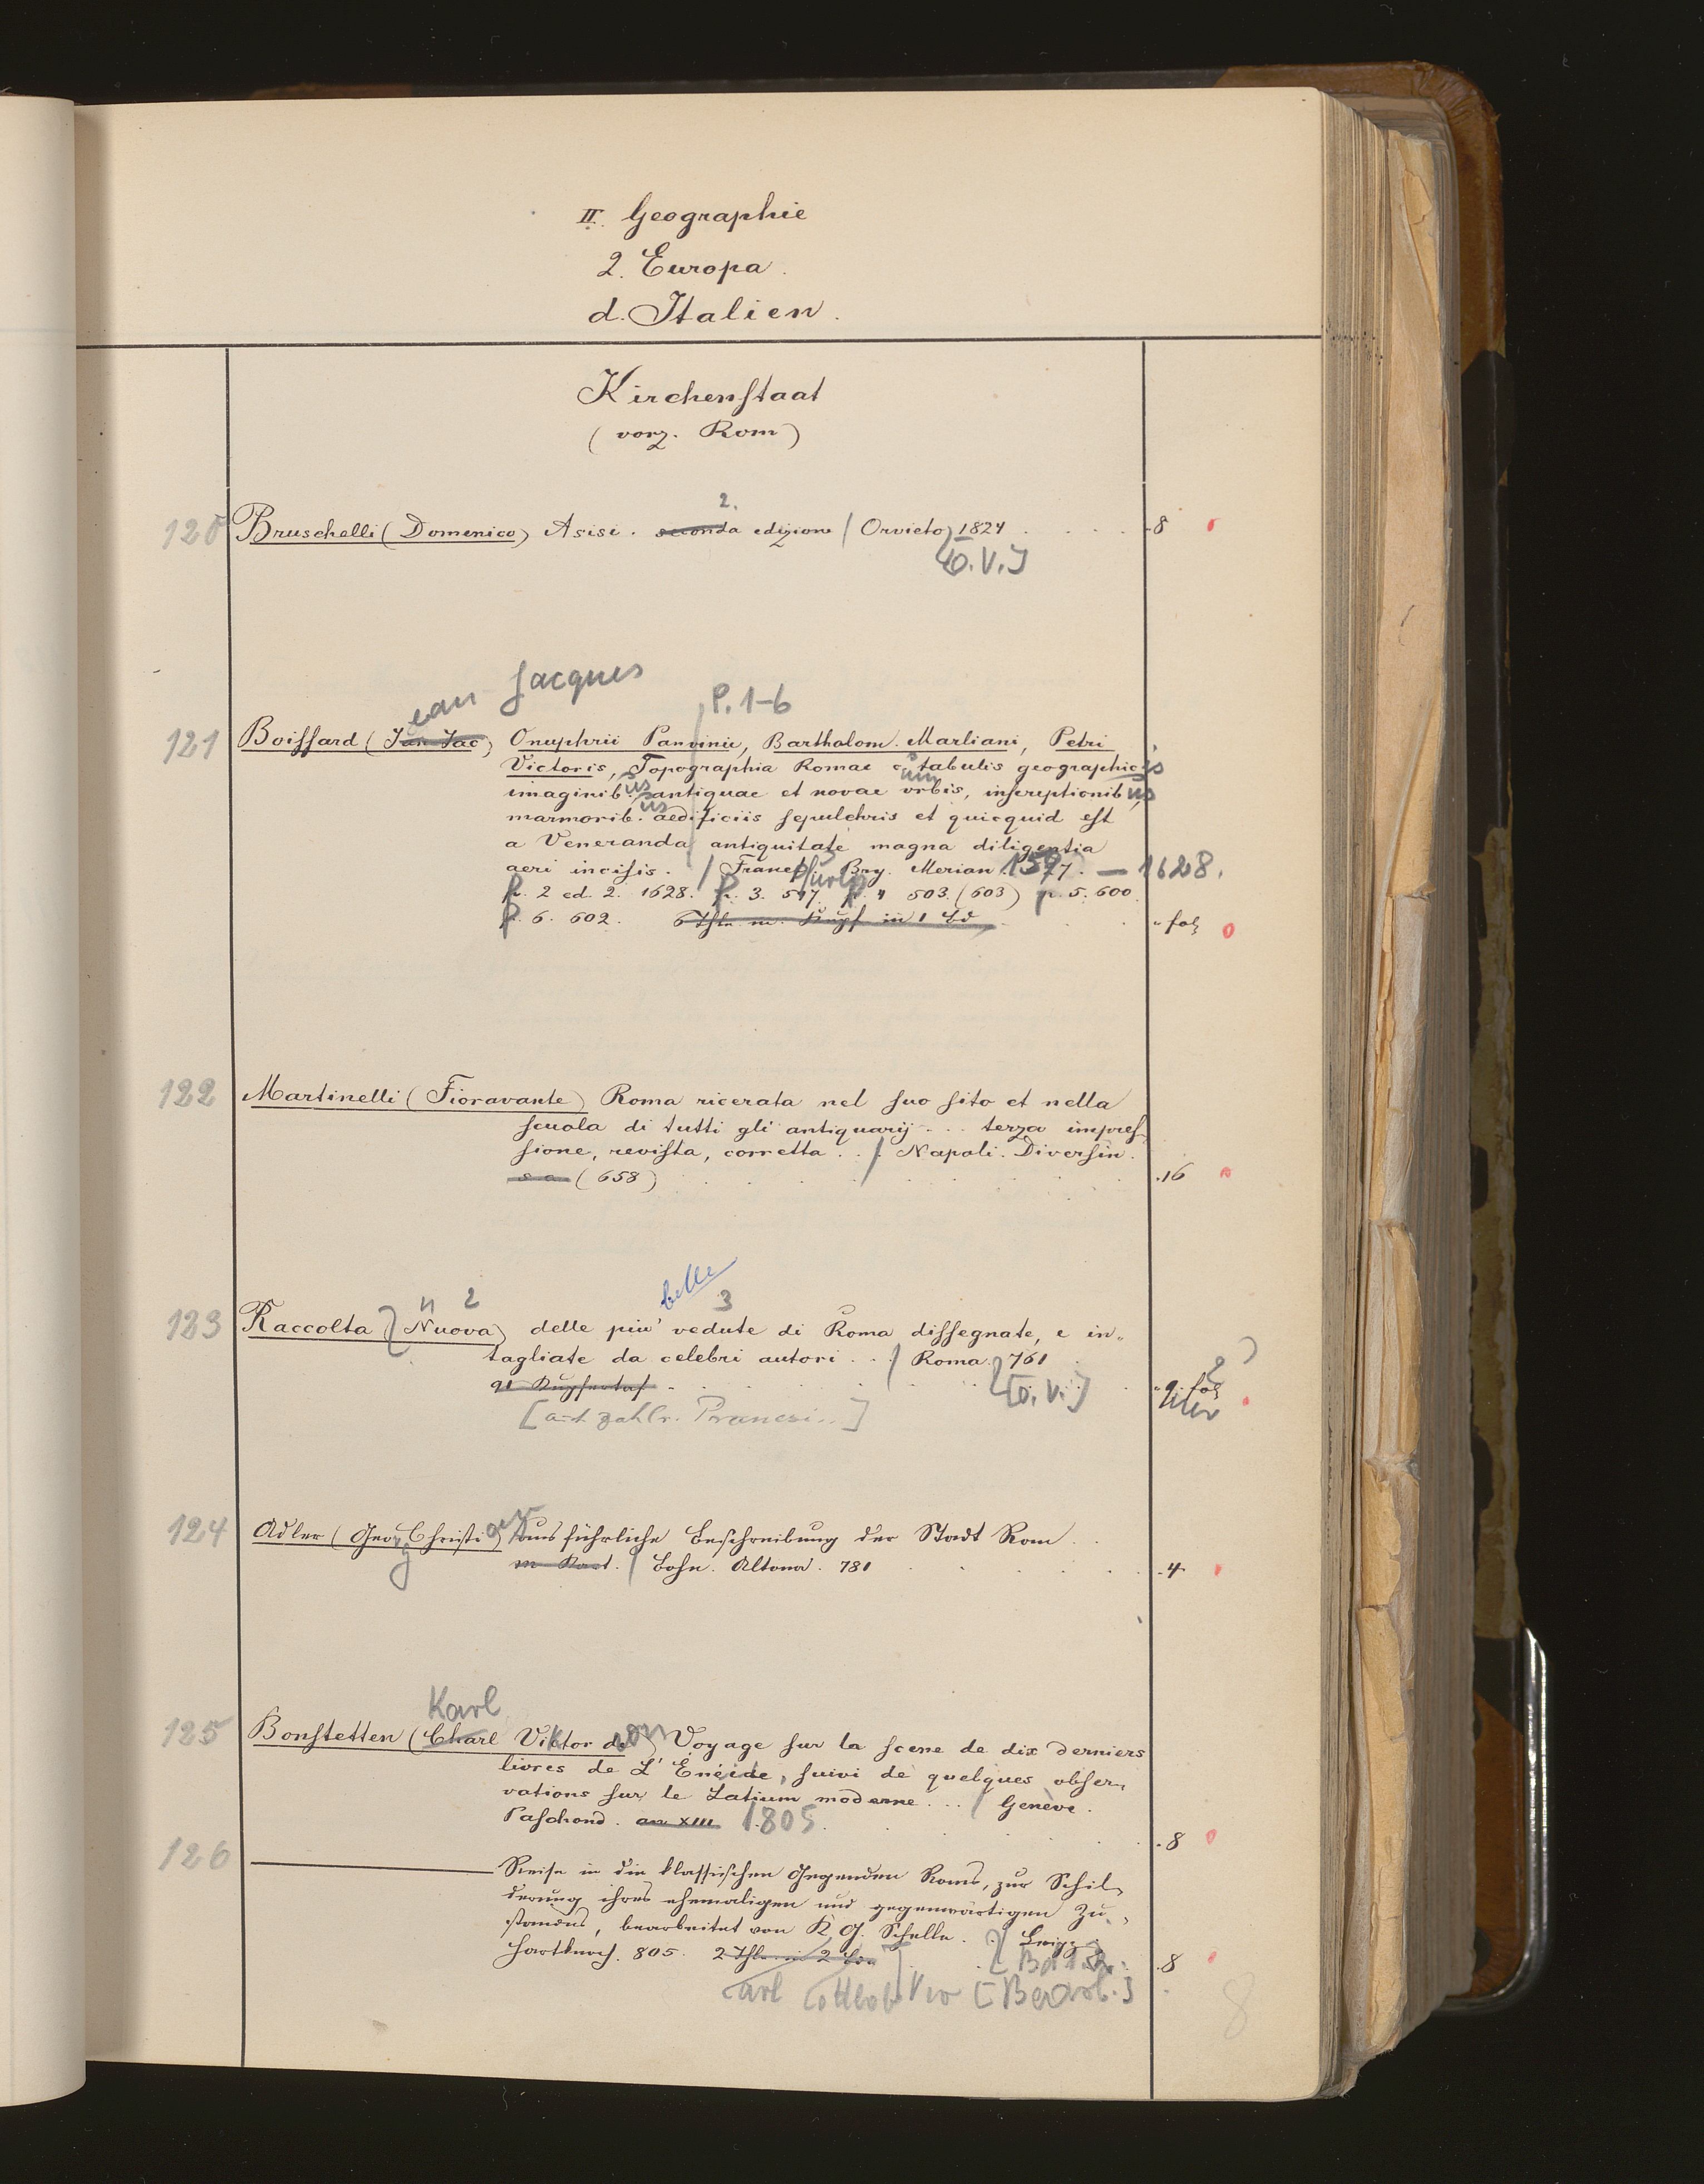 II. Geographie
2. Europa.
d. Italien.
Kirchenstaat
(vorz. Rom)
2.
120 Bruschelli (Domenico) Asisi. seconda edizione / Orvieto) 1824 . . . . 8
[O. V.]
ean Jacques
P. 1-6
121 Boissard (Jan Jac) Onuphrii Panvinii, Bartholom. Marliani, Petri
Victoris, Topographia Romae c. tabulis geographicis
um
imaginib. antiquae et novae urbis, inscriptionibus
us
marmorib. aedificiis sepulchris et quicquid est
us
a Veneranda antiquitate magna diligentia
aeri incisis. / Francf. Bry. Merian 1597. — 1628.
furt
p. 2 ed. 2. 1628. p. 3. 597. p. 4 503. (603) p. 5. 600.
p. 6. 602. 6 Thle. m. Kupf. in 1 Bd fol
122 Martinelli (Fioravante) Roma ricerata nel suo sito et nella
scuola di tutti gli antiquarij . . . terza impres-
sione, revista, corretta . . / Napoli. Diversin.
s a (658) . . . . 16
n 2 belle 3
123 Raccolta (Nuova) delle piu' vedute di Roma dissegnate, e in-
tagliate da celebri autori . . / Roma. 761
91 Kupfertaf. [O. V.] q. fol
quer ?
[a-t. zahlr. Piranesi..]
124 Adler (Georg Christi) Ausführliche Beschreibung der Stadt Rom . .
m Kart. / Bohn. Altona. 781 . . . . 4
Karl
125 Bonstetten (Charl Viktor de) Voyage sur la scene de dix derniers
von
livres de L'Enéide, suivi de quelques obser-
vations sur le Latium moderne . . . / Genève.
Paschoud. an XIII 1805. . . . 8
126 ——— Reise in die klassischen Gegenden Roms, zur Schil-
derung ihres ehemaligen und gegenwärtigen Zu-
standes, bearbeitet von K. G. Schelle. . / Leipz.
Hartknoch. 805. 2 Thle. in 2 Bde [Bd 1.2. . 8
arl ottlob [Bearb.]
8